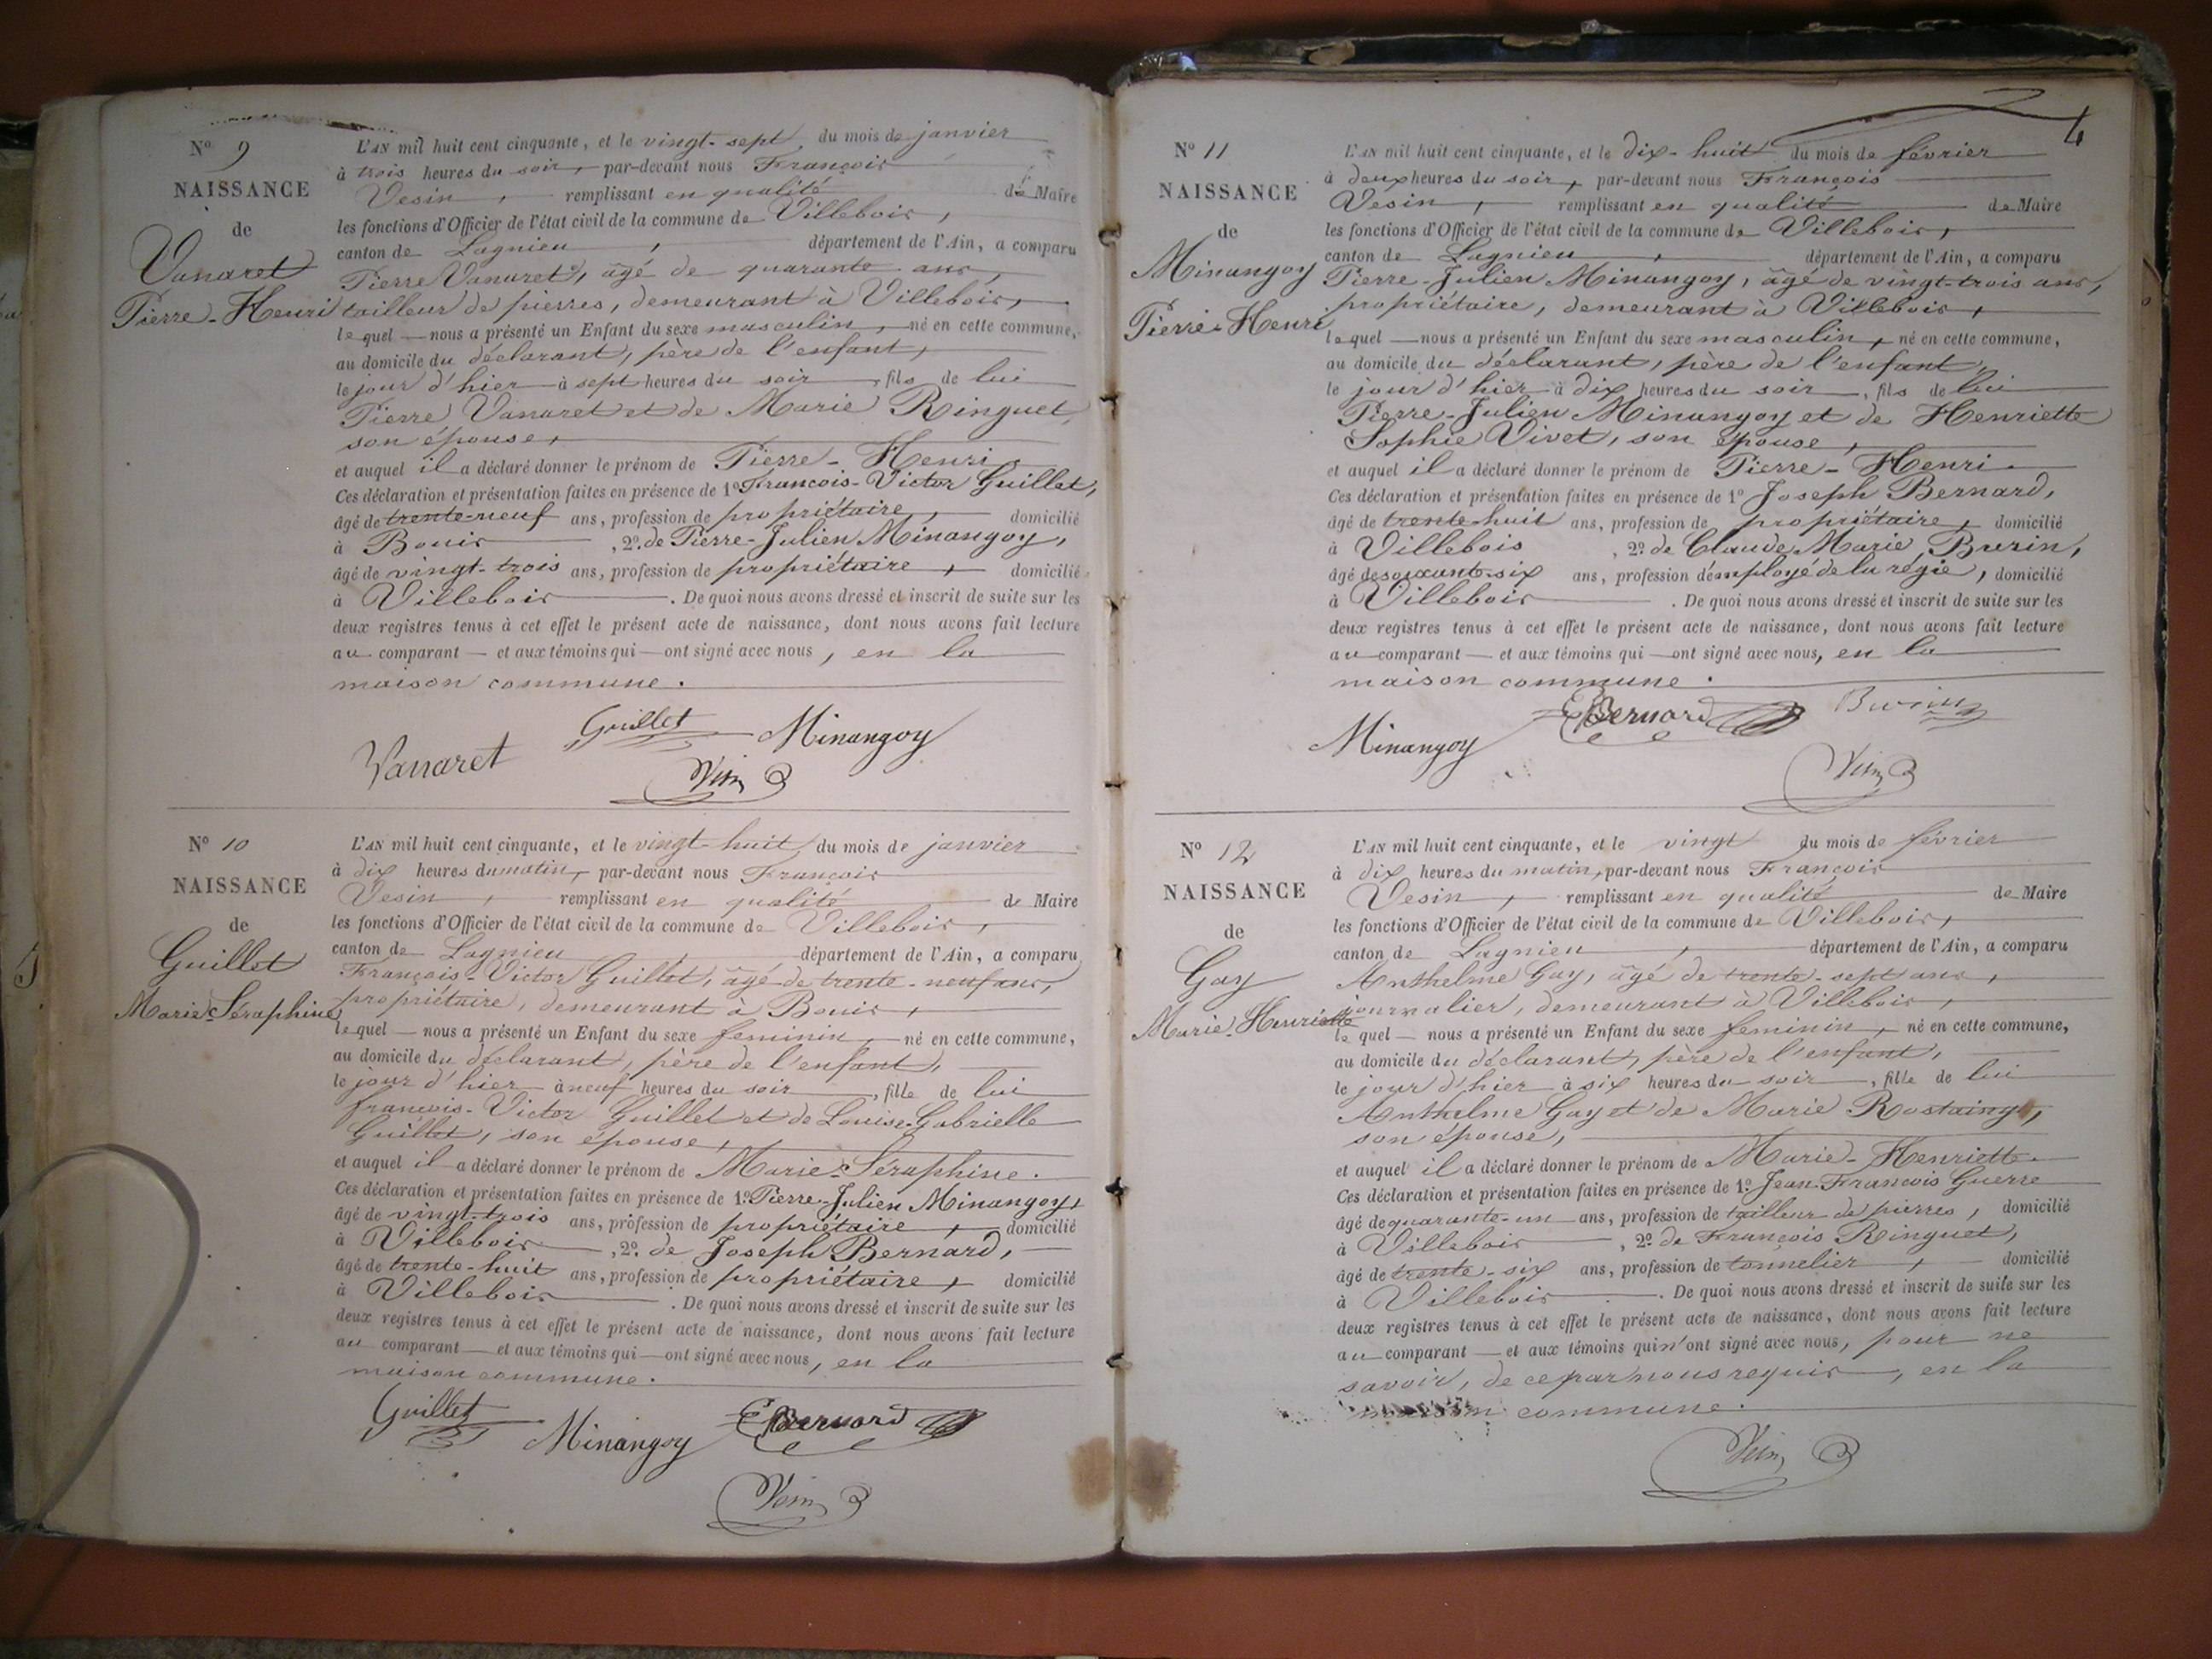 Nº 9
NAISSANCE
de
Vanaret
Pierre-Henri
L'AN mil huit cent cinquante, et le vingt-sept, du mois de janvier
à trois heures du soir, par-devant nous François
Vesin, remplissant en qualité de Maire
les fonctions d'Officier de l'état civil de la commune de Villebois,
canton de Lagnieu, département de l'Ain, a comparu
Pierre Vanaret, âgé de quarante ans,
tailleur de pierres, demeurant à Villebois,
lequel nous a présenté un Enfant du sexe masculin, né en cette commune,
au domicile du déclarant, père de l'enfant,
le jour d'hier à sept heures du soir, fils de lui
Pierre Vanaret et de Marie Ringuet,
son épouse,
et auquel il a déclaré donner le prénom de Pierre-Henri.
Ces déclaration et présentation faites en présence de 1º François-Victor Guillet,
âgé de trente-neuf ans, profession de propriétaire, domicilié
à Bouis, 2º de Pierre-Julien Minangoy,
âgé de vingt-trois ans, profession de propriétaire, domicilié
à Villebois. De quoi nous avons dressé et inscrit de suite sur les
deux registres tenus à cet effet le présent acte de naissance, dont nous avons fait lecture
au comparant et aux témoins qui ont signé avec nous, en la
maison commune.
Guillet Minangoy
Vanaret
Vesin
Nº 10
NAISSANCE
de
Guillet
Marie-Séraphine
L'AN mil huit cent cinquante, et le vingt-huit du mois de janvier
à dix heures du matin, par-devant nous François
Vesin, remplissant en qualité de Maire
les fonctions d'Officier de l'état civil de la commune de Villebois,
canton de Lagnieu département de l'Ain, a comparu
François-Victor Guillet, âgé de trente-neuf ans,
propriétaire, demeurant à Bouis,
lequel nous a présenté un Enfant du sexe feminin, né en cette commune,
au domicile du déclarant, père de l'enfant,
le jour d'hier à neuf heures du soir, fille de lui
francois-Victor Guillet et de Louise-Gabrielle
Guillet, son épouse,
et auquel il a déclaré donner le prénom de Marie-Séraphine.
Ces déclaration et présentation faites en présence de 1º Pierre-Julien Minangoy,
âgé de vingt-trois ans, profession de propriétaire, domicilié
à Villebois, 2º de Joseph Bernard,
âgé de trente-huit ans, profession de propriétaire, domicilié
à Villebois. De quoi nous avons dressé et inscrit de suite sur les
deux registres tenus à cet effet le présent acte de naissance, dont nous avons fait lecture
au comparant et aux témoins qui ont signé avec nous, en la
maison commune.
Guillet Minangoy Bernard
Vesin
4
Nº 11
NAISSANCE
de
Minangoy
Pierre-Henri
L'AN mil huit cent cinquante, et le dix-huit du mois de février
à deux heures du soir, par-devant nous François
Vesin, remplissant en qualité de Maire
les fonctions d'Officier de l'état civil de la commune de Villebois,
canton de Lagnieu, département de l'Ain, a comparu
Pierre-Julien Minangoy, âgé de vingt-trois ans,
propriétaire, demeurant à Villebois,
lequel nous a présenté un Enfant du sexe masculin, né en cette commune,
au domicile du déclarant, père de l'enfant,
le jour d'hier à dix heures du soir, fils de lui
Pierre-Julien Minangoy et de Henriette
Sophie Vivet, son épouse,
et auquel il a déclaré donner le prénom de Pierre-Henri.
Ces déclaration et présentation faites en présence de 1º Joseph Bernard,
âgé de trente-huit ans, profession de propriétaire, domicilié
à Villebois, 2º de Claude Marie
âgé de soixante-six ans, profession d'employé de la régie, domicilié
à Villebois. De quoi nous avons dressé et inscrit de suite sur les
deux registres tenus à cet effet le présent acte de naissance, dont nous avons fait lecture
au comparant et aux témoins qui ont signé avec nous, en la
maison commune.
Minangoy Bernard
Vesin
Nº 12
NAISSANCE
de
Gay
Marie-Henriette
L'AN mil huit cent cinquante, et le vingt du mois de février
à dix heures du matin, par-devant nous François
Vesin, remplissant en qualité de Maire
les fonctions d'Officier de l'état civil de la commune de Villebois,
canton de Lagnieu, département de l'Ain, a comparu
Anthelme Gay, âgé de trente-sept ans,
journalier, demeurant à Villebois,
lequel nous a présenté un Enfant du sexe feminin, né en cette commune,
au domicile du déclarant, père de l'enfant,
le jour d'hier à six heures du soir, fille de lui
Anthelme Gay et de Marie Rostaing,
son épouse,
et auquel il a déclaré donner le prénom de Marie-Henriette.
Ces déclaration et présentation faites en présence de 1º Jean-François Guerre
âgé de quarante-un ans, profession de tailleur de pierres, domicilié
à Villebois, 2º de François Ringuet,
âgé de trente-six ans, profession de tonnelier, domicilié
à Villebois. De quoi nous avons dressé et inscrit de suite sur les
deux registres tenus à cet effet le présent acte de naissance, dont nous avons fait lecture
au comparant et aux témoins qui n'ont signé avec nous, pour ne
savoir, de ce par nous requis, en la
maison commune.
Vesin